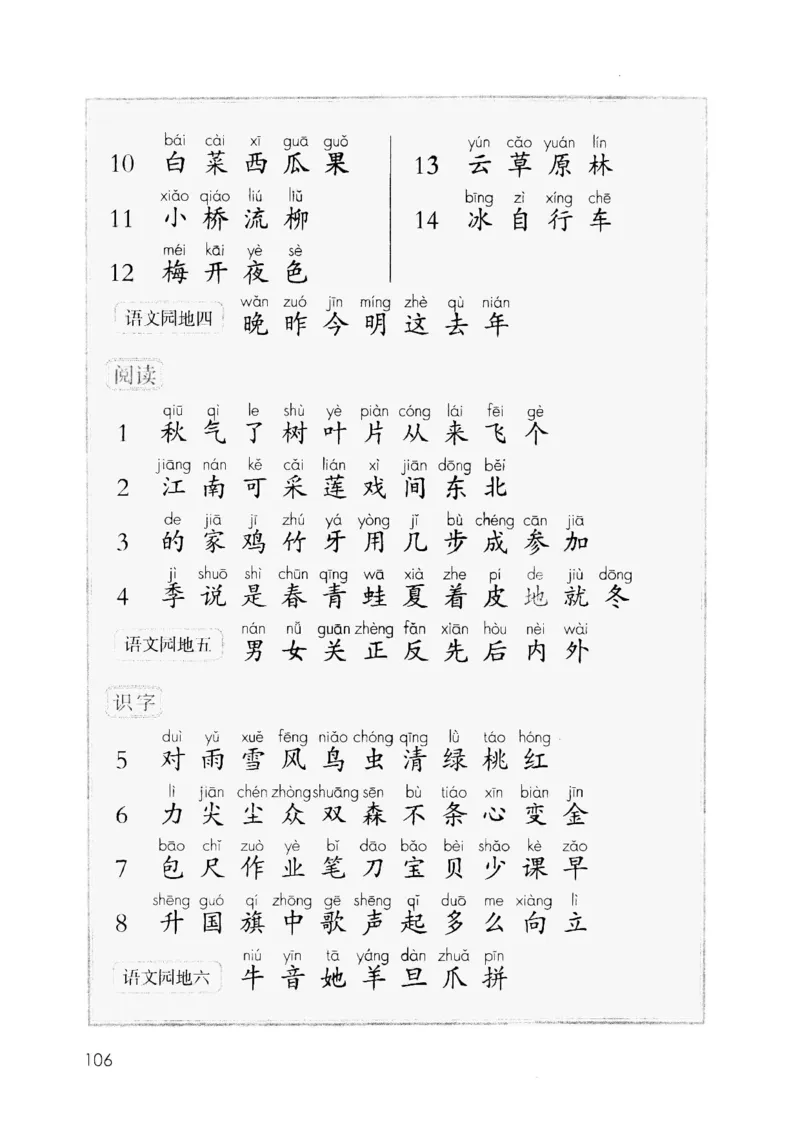 bái cài xī guā guǒ
10 白 菜 西 瓜 果
xiǎo qiáo liú liǔ
11 小 桥 流 柳
méi kāi yè sè
12 梅 开 夜 色
yún cǎo yuán lín
13 云 草 原 林
bīng zì xíng chē
14 冰 自 行 车
wǎn zuó jīn míng zhè qù nián
语文园地四 晚 昨 今 明 这 去 年
阅读
qiū qì le shù yè piàn cóng lái fēi gè
1 秋 气 了 树 叶 片 从 来 飞 个
jiāng nán kě cǎi lián xì jiān dōng běi
2 江 南 可 采 莲 戏 间 东 北
de jiā jī zhú yá yòng jǐ bù chéng cān jiā
3 的 家 鸡 竹 牙 用 几 步 成 参 加
jì shuō shì chūn qīng wā xià zhe pí de jiù dōng
4 季 说 是 春 青 蛙 夏 着 皮 地 就 冬
nán nǚ guān zhèng fǎn xiān hòu nèi wài
语文园地五 男 女 关 正 反 先 后 内 外
识字
duì yǔ xuě fēng niǎo chóng qīng lǜ táo hóng
5 对 雨 雪 风 鸟 虫 清 绿 桃 红
lì jiān chén zhòng shuāng sēn bù tiáo xīn biàn jīn
6 力 尖 尘 众 双 森 不 条 心 变 金
bāo chǐ zuò yè bǐ dāo bǎo bèi shǎo kè zǎo
7 包 尺 作 业 笔 刀 宝 贝 少 课 早
shēng guó qí zhōng gē shēng qǐ duō me xiàng lì
8 升 国 旗 中 歌 声 起 多 么 向 立
niú yīn tā yáng dàn zhuǎ pīn
语文园地六 牛 音 她 羊 旦 爪 拼
106